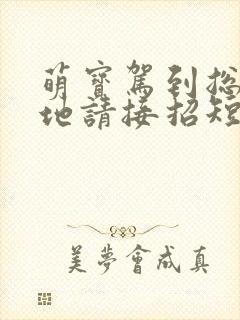 萌寶駕到總
地請接招短
美夢會成真